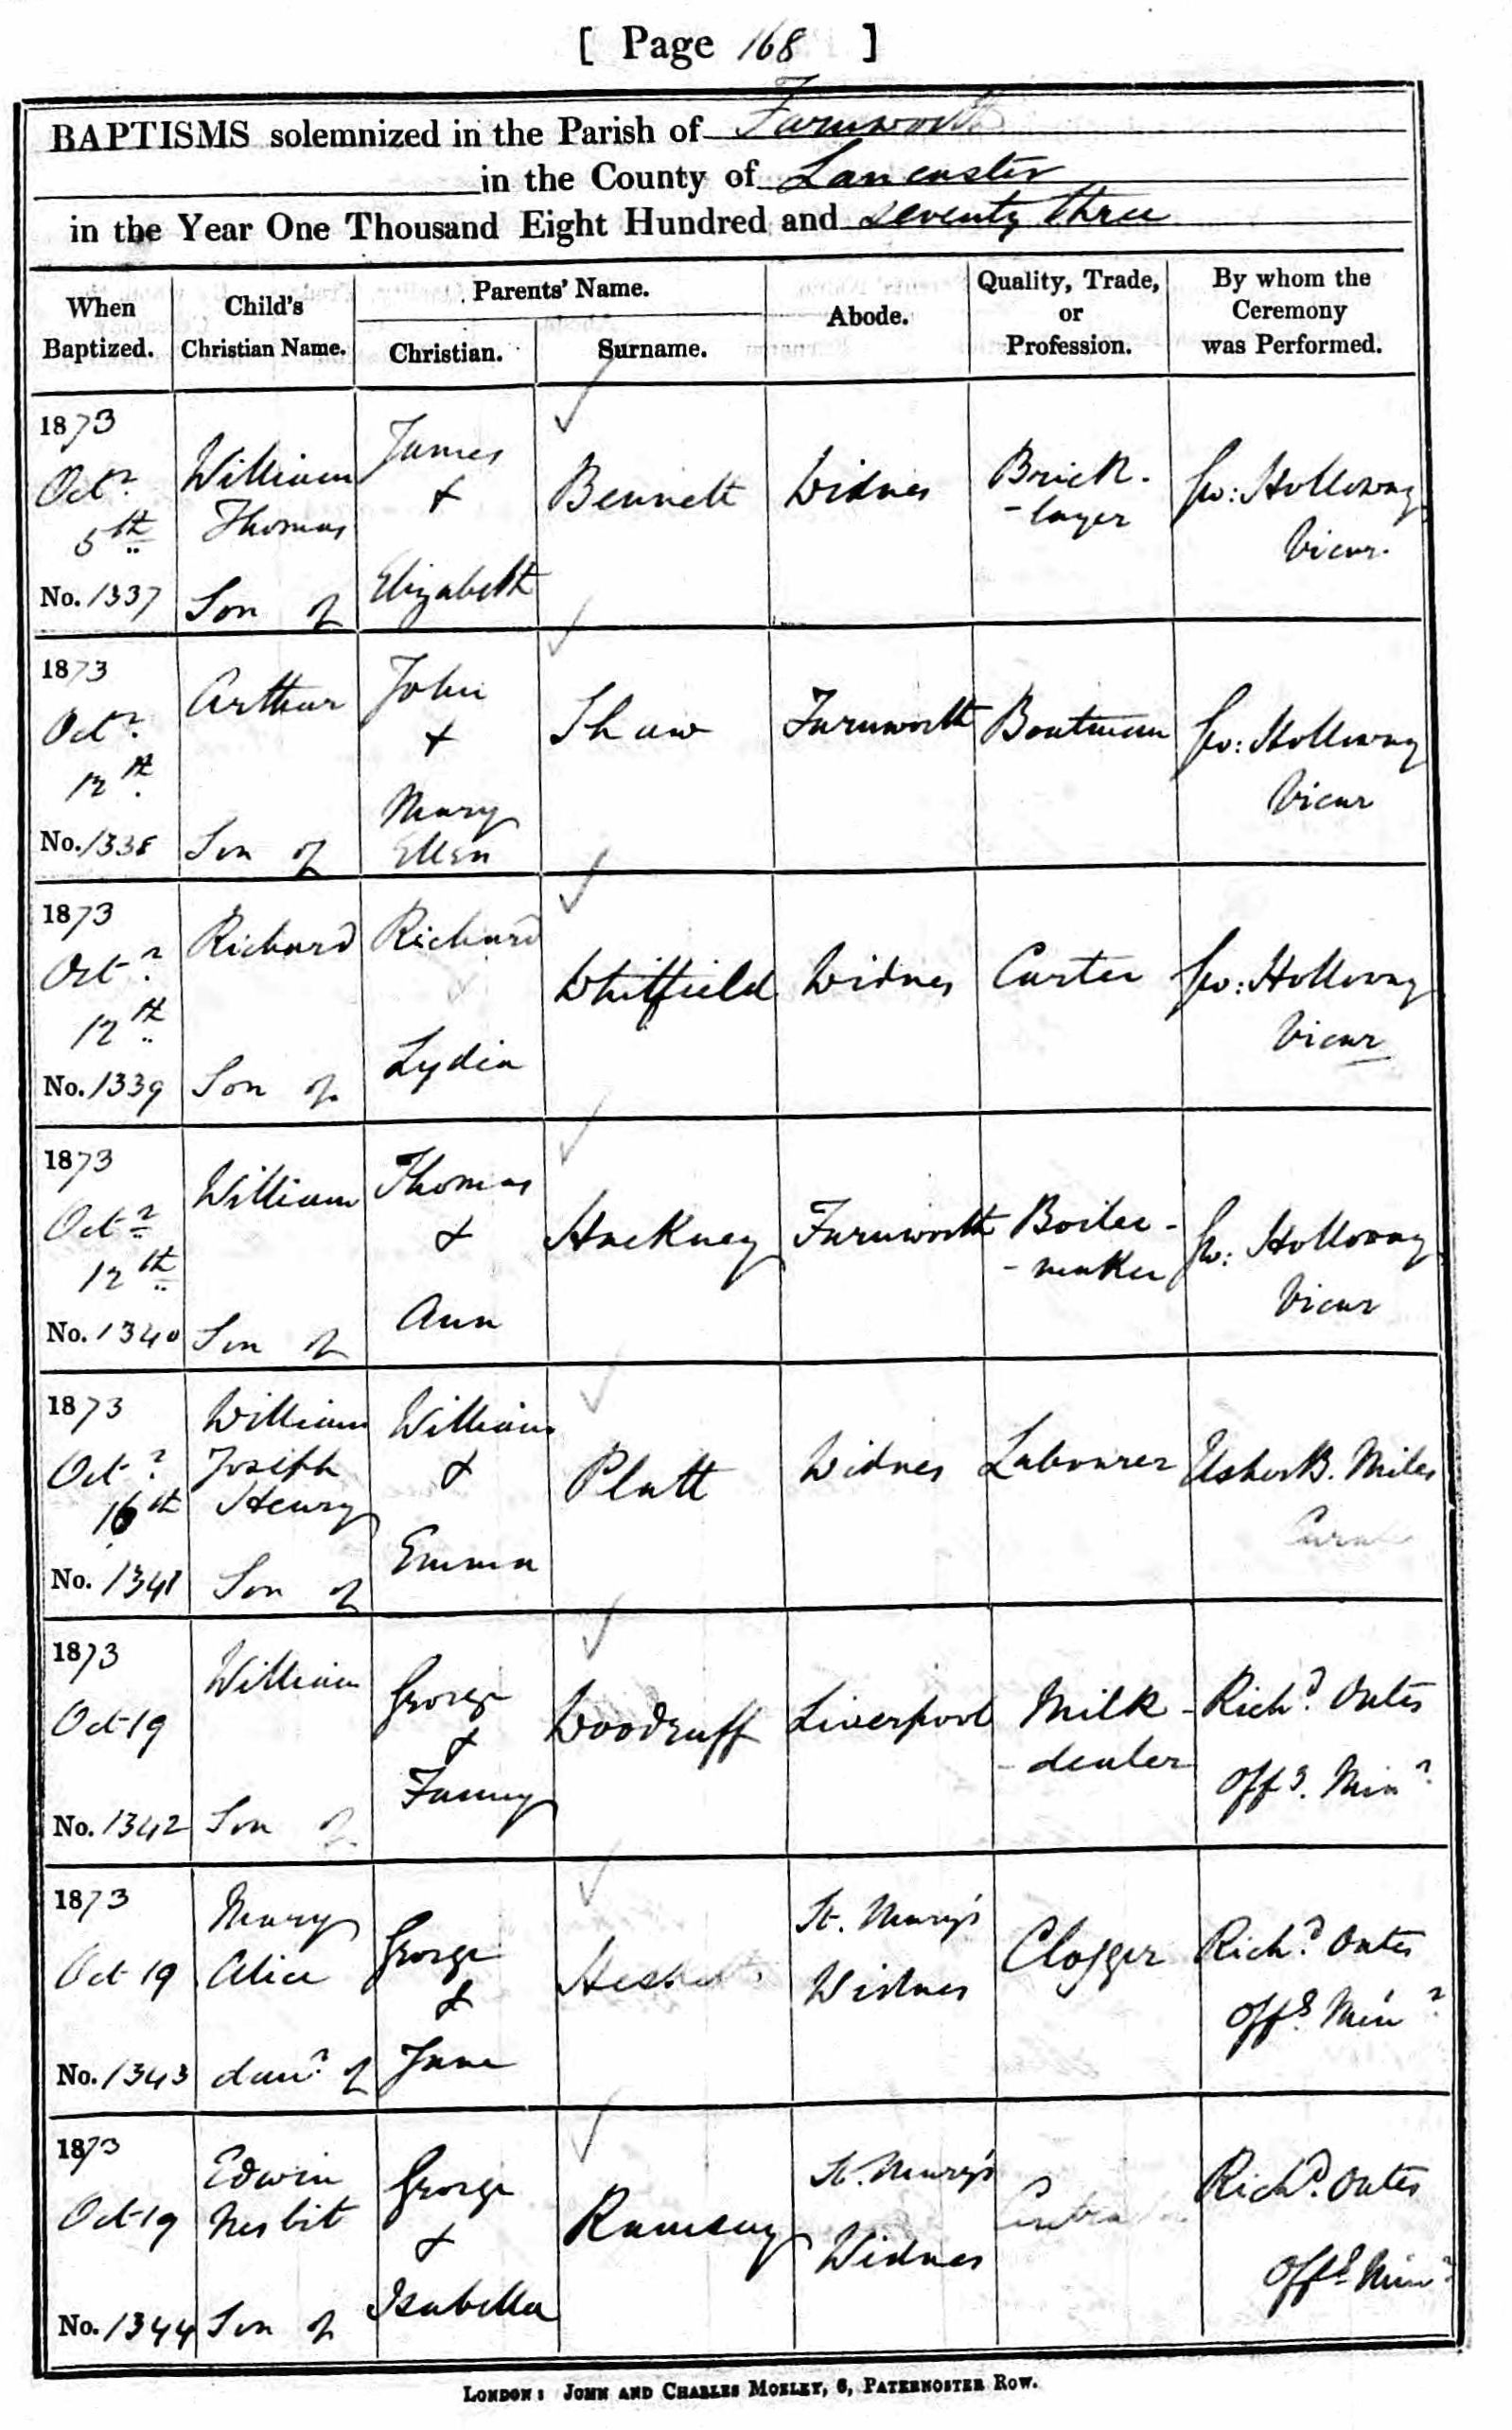 [ Page 168 ]
BAPTISMS solemnized in the Parish of Farnworth
in the County of Lancaster
in the Year One Thousand Eight Hundred and seventy three
When Baptized.
Child's Christian Name.
Parents' Name.
Christian.
Surname.
Abode.
Quality, Trade, or Profession.
By whom the Ceremony was Performed.
1873
Octr
5th
No. 1337
William
Thomas
Son of
James
&
Elizabeth
Bennett
Widnes
Brick-
-layer
Geo: Holloway
Vicar.
1873
Octr
12th
No. 1338
Arthur
Son of
John
&
Mary
Ellen
Shaw
Farnworth
Boatman
Geo: Holloway
Vicar
1873
Octr
12th
No. 1339
Richard
Son of
Richard
&
Lydia
Whitfield
Widnes
Carter
Geo: Holloway
Vicar
1873
Octr
12th
No. 1340
William
Son of
Thomas
&
Ann
Hackney
Farnworth
Boiler-
-maker
Geo: Holloway
Vicar
1873
Octr
16th
No. 1341
William
Joseph
Henry
Son of
William
&
Emma
Platt
Widnes
Labourer
Usher B. Miles
Curate
1873
Oct 19
No. 1342
William
Son of
George
&
Fanny
Woodruff
Liverpool
Milk-
-dealer
Richd. Oates
Offg. Minr
1873
Oct 19
No. 1343
Mary
Alice
daur of
George
&
Jane
St. Mary's
Widnes
Clogger
Richd. Oates
Offg. Minr
1873
Oct 19
No. 1344
Edwin
Nesbit
Son of
George
&
Isabella
Ramsay
St. Mary's
Widnes
Richd. Oates
Offg. Minr
LONDON: JOHN AND CHARLES MOZLEY, 6, PATERNOSTER ROW.